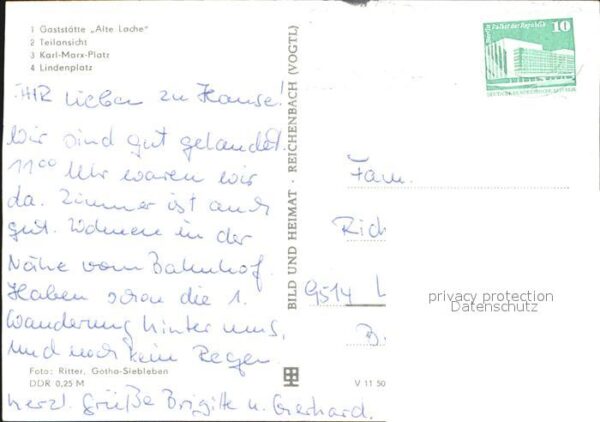 1 Gaststätte „Alte Lache"
2 Teilansicht
3 Karl-Marx-Platz
4 Lindenplatz
IHR lieben zu Hause!
Wir sind gut gelandet.
11⁰⁰ Uhr waren wir
da. Zimmer ist auch
gut. Wohnen in der
Nähe vom Bahnhof.
Haben schon die 1.
Wanderung hinter uns,
und noch kein Regen.
Foto: Ritter, Gotha-Siebleben
DDR 0,25 M
herzl. Grüße Brigitte u. Gerhard.
BILD UND HEIMAT · REICHENBACH (VOGTL)
V 11 50
Berlin Palast der Republik
10
Fam.
Rich
9514
privacy protection
Datenschutz